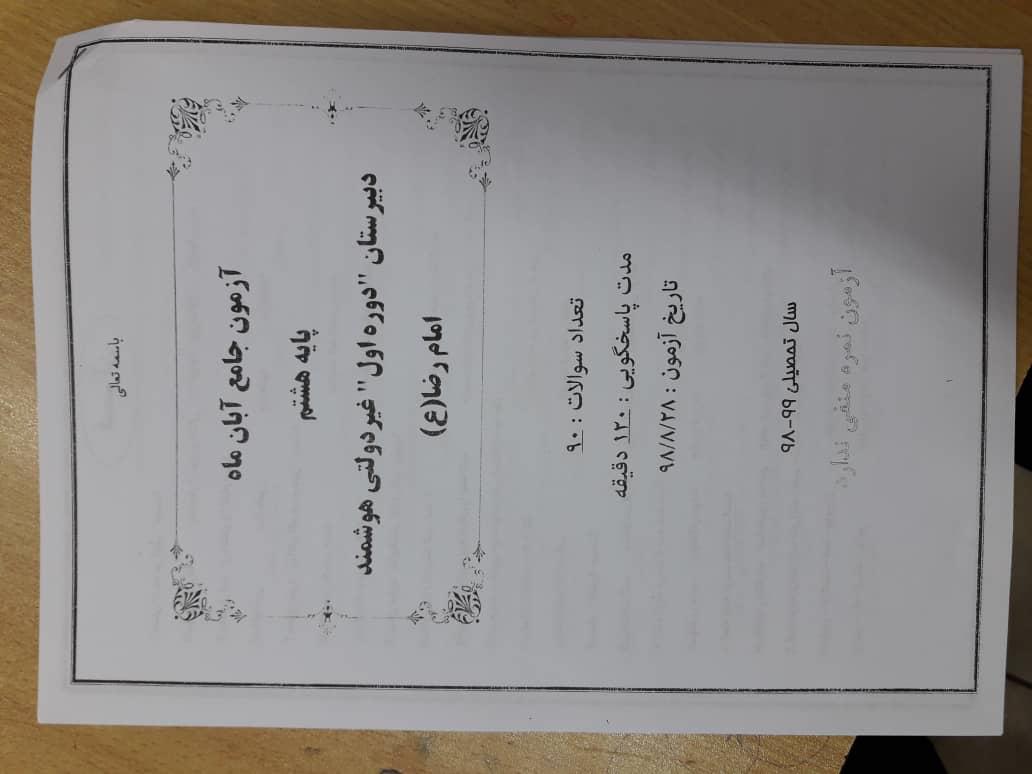 باسمه تعالی
آزمون جامع آبان ماه
پایه هشتم
دبیرستان "دوره اول" غیردولتی هوشمند
امام رضا(ع)
تعداد سوالات : ۹۰
مدت پاسخگویی : ۱۲۰ دقیقه
تاریخ آزمون : ۹۸/۸/۲۸
سال تحصیلی ۹۹-۹۸
آزمون نمره منفی ندارد
۱